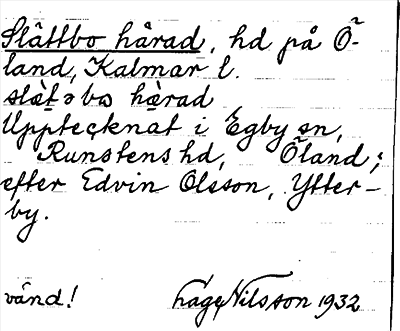 Slättbo härad, hd på Ö-
land, Kalmar l.
slät̠əbo hä̠rad
Upptecknat i Egby sn,
Runstens hd, Öland;
efter Edvin Olsson, Ytter-
by.
vänd! Hage Nilsson 1932